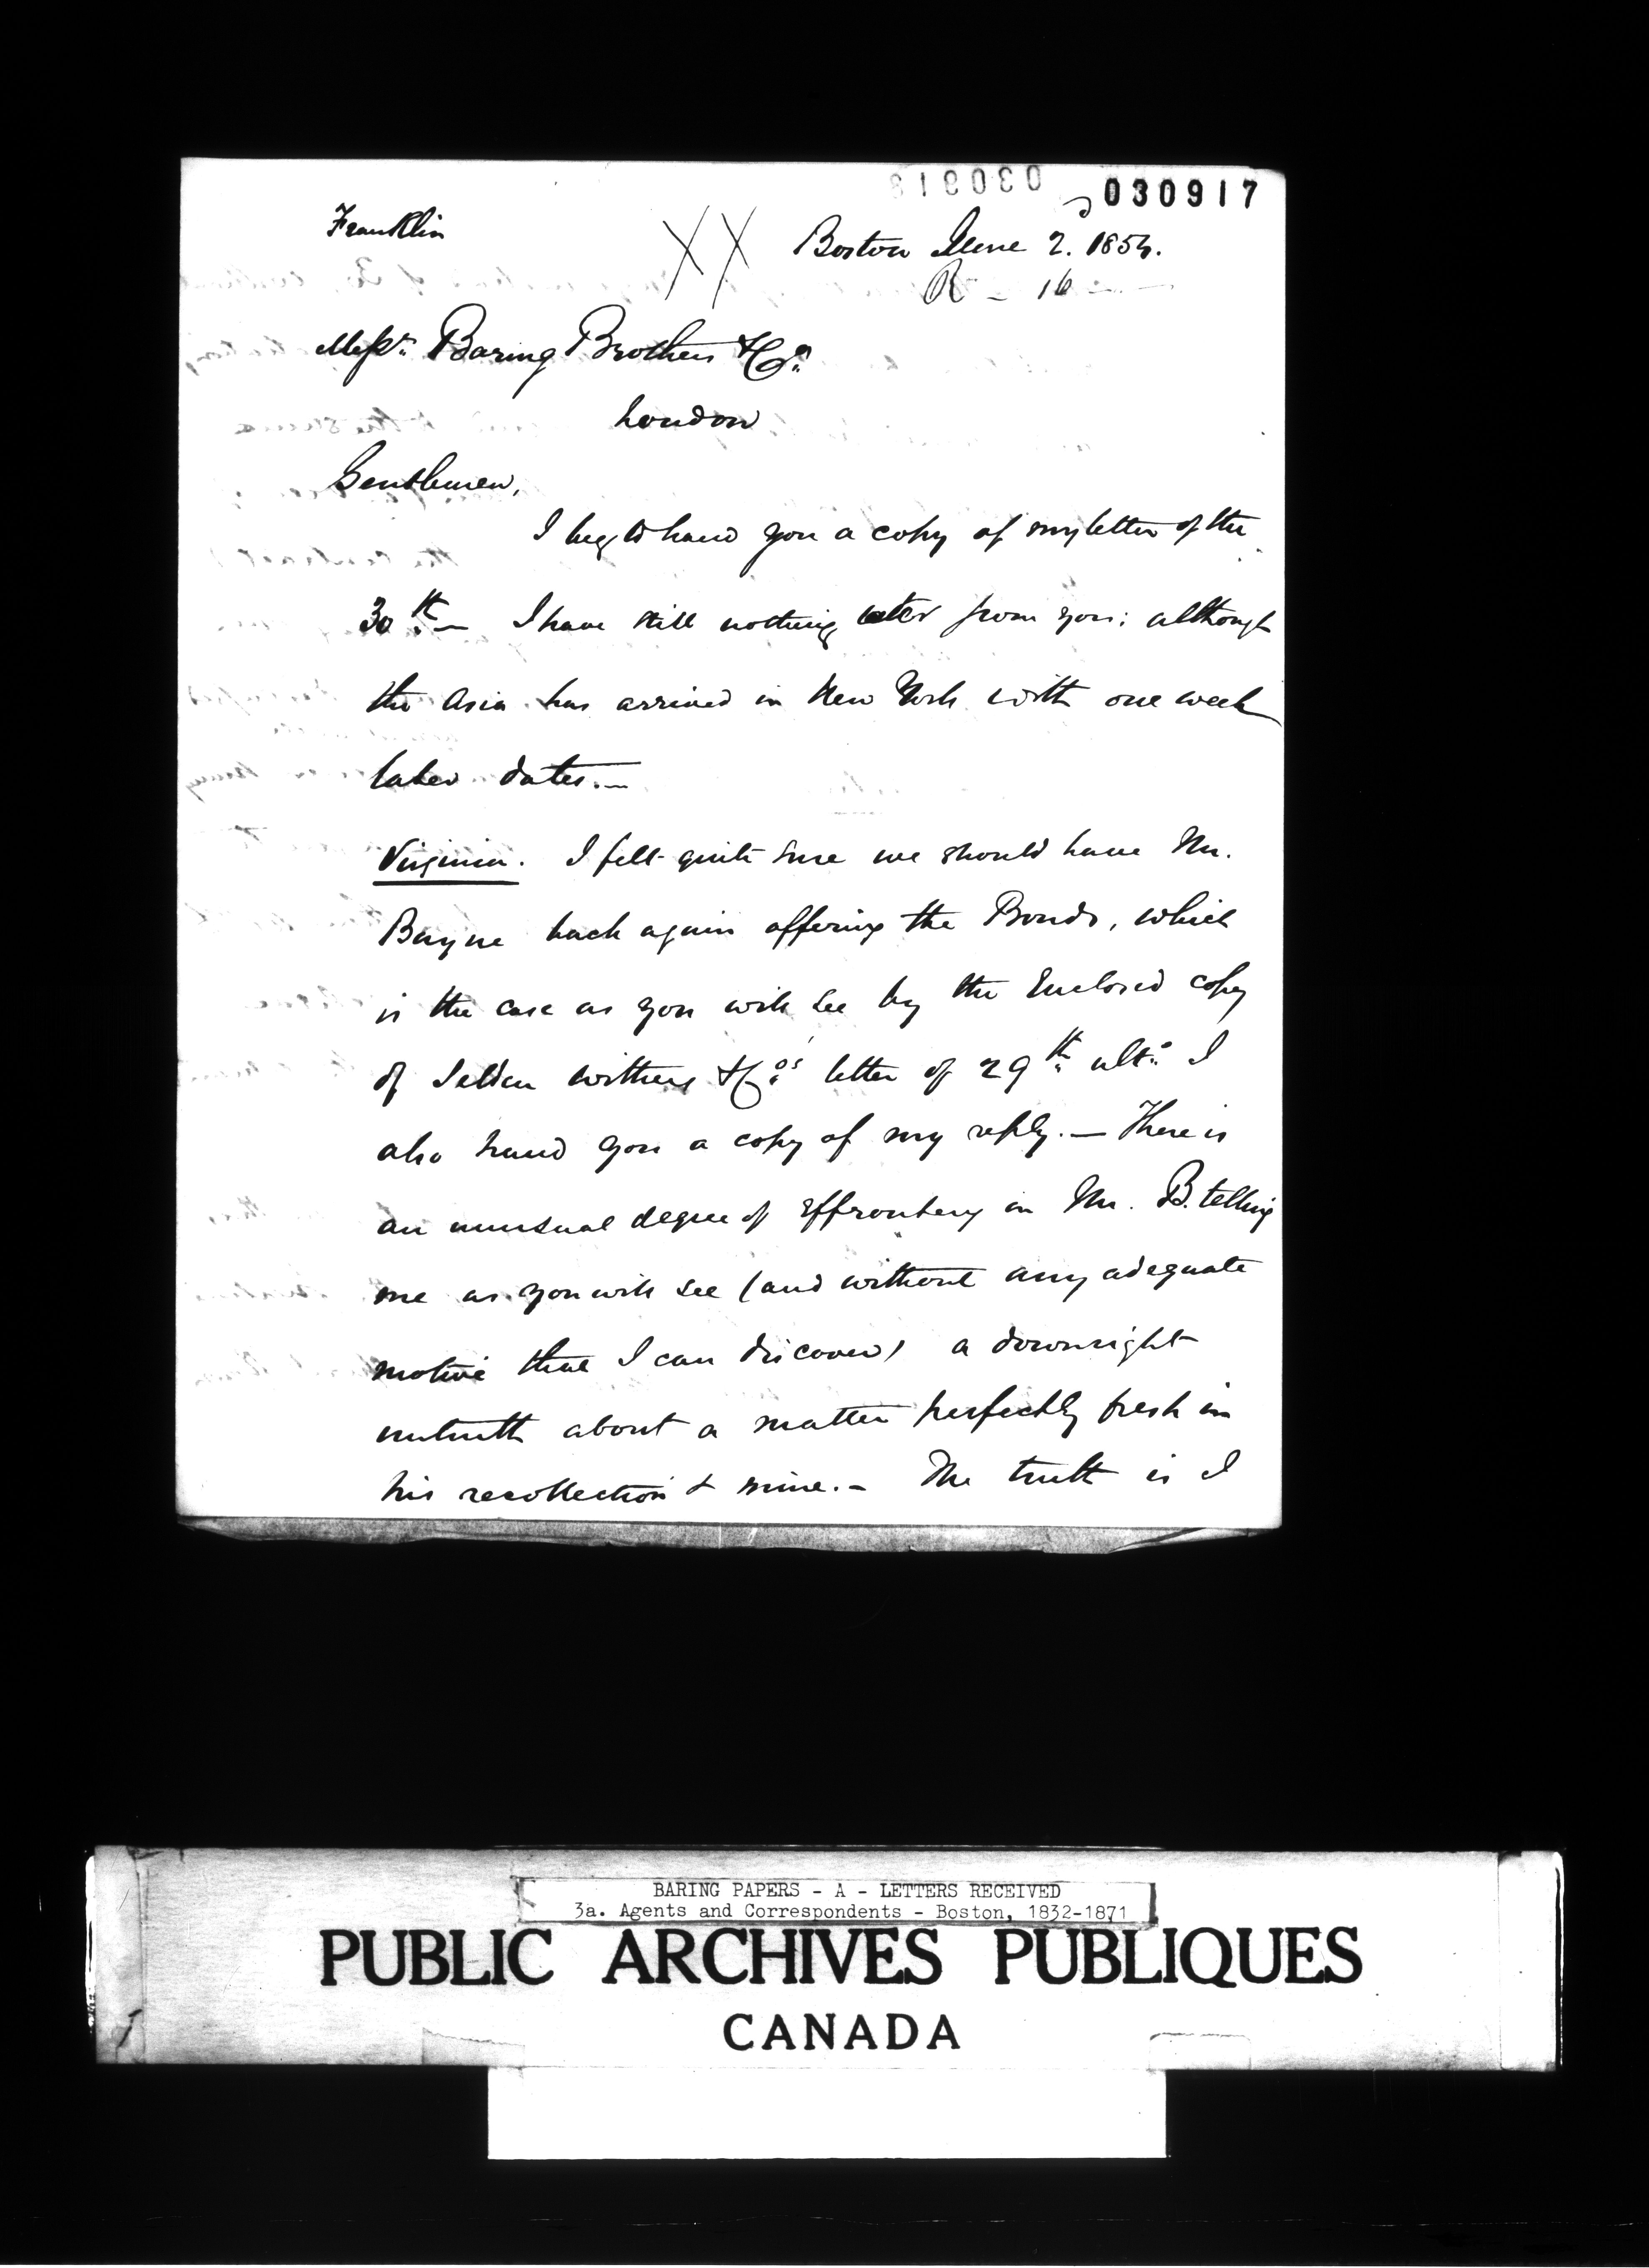 030917
Franklin
Boston June 2. 1854.
R - 16
Messrs. Baring Brothers & Co.
London
Gentlemen,
I beg to hand you a copy of my letter of the
30th.— I have still nothing later from you; although
the Asia has arrived in New York with one week
later dates.—
Virginia. I felt quite sure we should have Mr.
Bayne back again offering the Bonds, which
is the case as you will see by the Enclosed copy
of Selden Withers & Co's letter of 29th ulto. I
also hand you a copy of my reply.— There is
an unusual degree of effrontery in Mr. B. telling
me as you will see (and without any adequate
motive that I can discover) a downright
untruth about a matter perfectly fresh in
his recollection & mine.— The truth is I
BARING PAPERS - A - LETTERS RECEIVED
3a. Agents and Correspondents - Boston, 1832-1871
PUBLIC ARCHIVES PUBLIQUES
CANADA